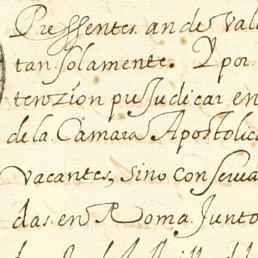 Pressentes. an de Vale
tan solamente. Y por
tenzion pu Judicar en
de la Camara Apostolic
vacantes, sino conserua
das en Roma. Junto